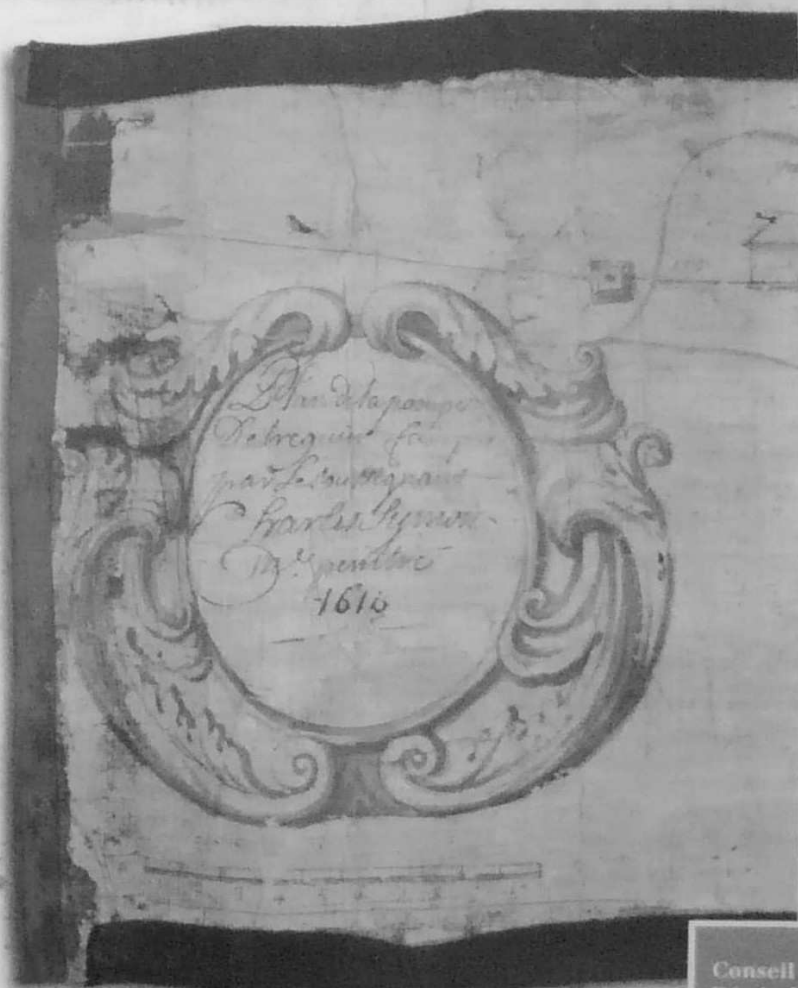 Plan de la pompe
De treguier
par Le soussignant
Charles Symon
Mᵉ peintre
1616
Conseil